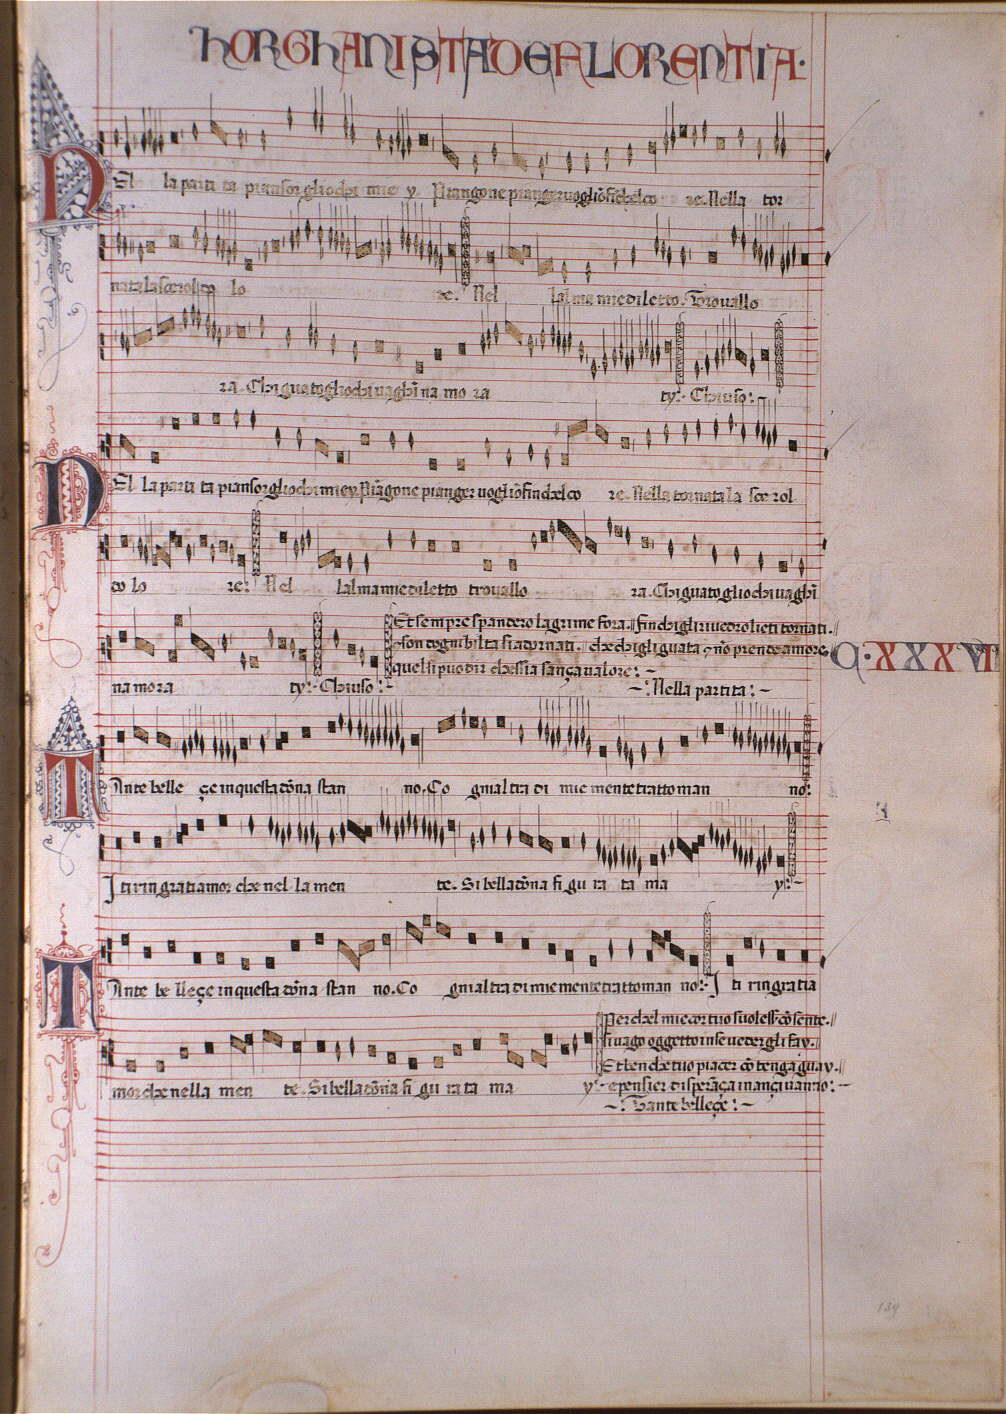 HORGHANISTA DE FLORENTIA.
NElla parti ta pianfor gliochi mie y Piangone pianger voglio finchelco re. Nella tor
nata la sco rol co lo re: Nel lalma mie diletto. Trovallo
ra. Chi guato gliochi vaghi na mo ra ty: Chiuso:
NEl la parti ta pianfor gliochi miey. Piangone pianger voglio finchelco re. Nella tornata la sco rol
co lo re: Nel lalma mie diletto trovallo ra. Chi guato gliochi vaghi
Et sempre spandero lagrime fora. finchigli rivedro lieti tornati.
son dogni bilta si adornati che chigli guata non prende amore
quel si puo dir chessia sança valore:
na mo ra ty: Chiuso:
Nella partita:
Q. XXXVII
TAnte belle çe in questa dona stan no. Co gnial tra di mie mente tratto man no:
I ti ringratia amor che nel la men te. Si bella dona fi gu ra ta ma y:
TAnte be lleçe in questa dona stan no. Co gnial tra di mie mente tratto man no: I ti ringratia
mor che nella men te. Si bella dona fi gu ra ta ma y:
Perchel mie cor tuo suo less consente.
si vago oggetto in se veder gli fay.
Et ben che tuo piacer con tenga guay.
e pensier di sperança innançi vanno:
Tante belleçe:
139